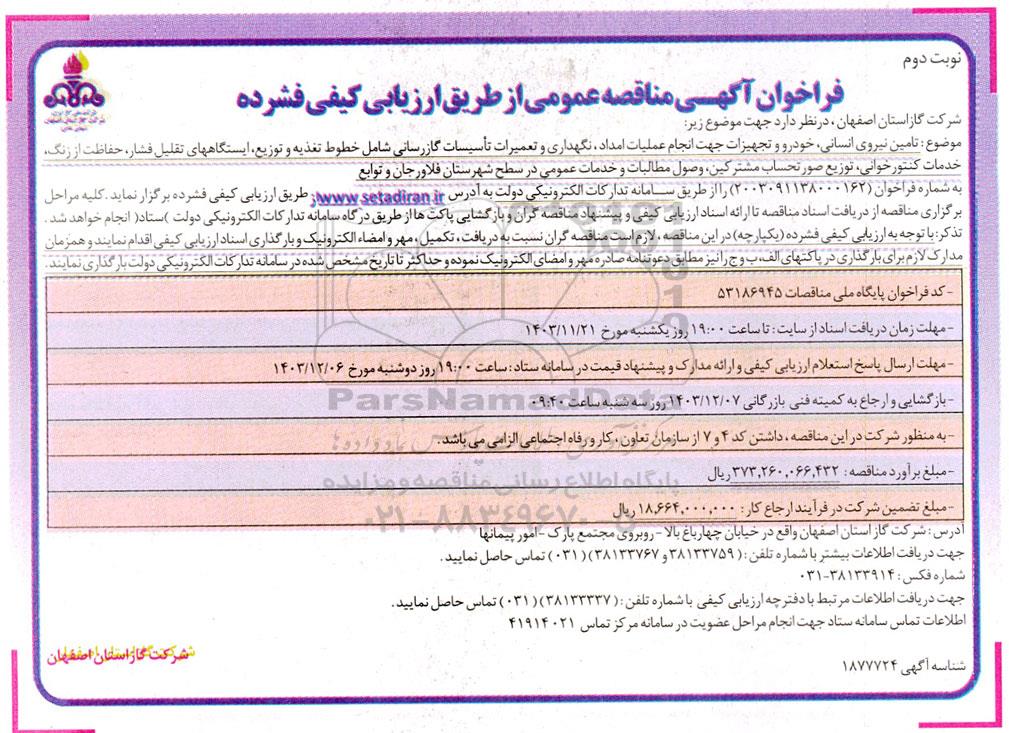 نوبت دوم
فراخوان آگهی مناقصه عمومی از طریق ارزیابی کیفی فشرده
شرکت گاز استان اصفهان، در نظر دارد جهت موضوع زیر:
موضوع: تامین نیروی انسانی، خودرو و تجهیزات جهت انجام عملیات امداد، نگهداری و تعمیرات تأسیسات گازرسانی شامل خطوط تغذیه و توزیع، ایستگاههای تقلیل فشار، حفاظت از زنگ،
خدمات کنتورخوانی، توزیع صورتحساب مشترکین، وصول مطالبات و خدمات عمومی در سطح شهرستان فلاورجان و توابع
به شماره فراخوان (۲۰۰۳۰۹۱۱۳۸۰۰۰۱۶۲) را از طریق سامانه تدارکات الکترونیکی دولت به آدرس www.setadiran.ir از طریق ارزیابی کیفی فشرده برگزار نماید. کلیه مراحل
برگزاری مناقصه از دریافت اسناد مناقصه تا ارائه اسناد ارزیابی کیفی و پیشنهاد مناقصه گران و بازگشایی پاکت ها از طریق درگاه سامانه تدارکات الکترونیکی دولت )ستاد( انجام خواهد شد.
تذکر: با توجه به ارزیابی کیفی فشرده (یکپارچه) در این مناقصه، لازم است مناقصه گران نسبت به دریافت، تکمیل، مهر و امضاء الکترونیک و بارگذاری اسناد ارزیابی کیفی اقدام نمایند و همزمان
مدارک لازم برای بارگذاری در پاکتهای الف، ب و ج را نیز مطابق دعوتنامه صادره مهر و امضای الکترونیک نموده و حداکثر تا تاریخ مشخص شده در سامانه تدارکات الکترونیکی دولت بارگذاری نمایند.
- کد فراخوان پایگاه ملی مناقصات ۵۳۱۸۶۹۴۵
- مهلت زمان دریافت اسناد از سایت: تا ساعت ۱۹:۰۰ روز یکشنبه مورخ ۱۴۰۳/۱۱/۲۱
- مهلت ارسال پاسخ استعلام ارزیابی کیفی و ارائه مدارک و پیشنهاد قیمت در سامانه ستاد: ساعت ۱۹:۰۰ روز دوشنبه مورخ ۱۴۰۳/۱۲/۰۶
- بازگشایی و ارجاع به کمیته فنی بازرگانی ۱۴۰۳/۱۲/۰۷ روز سه شنبه ساعت ۰۹:۴۰
- به منظور شرکت در این مناقصه، داشتن کد ۴ و ۷ از سازمان تعاون، کار و رفاه اجتماعی الزامی می باشد.
- مبلغ برآورد مناقصه: ۳۷۳,۲۶۰,۰۶۶,۴۳۲ ریال
- مبلغ تضمین شرکت در فرآیند ارجاع کار: ۱۸,۶۶۴,۰۰۰,۰۰۰ ریال
آدرس: شرکت گاز استان اصفهان واقع در خیابان چهارباغ بالا - روبروی مجتمع پارک - امور پیمانها
جهت دریافت اطلاعات بیشتر با شماره تلفن: (۳۸۱۳۳۷۵۹ و ۳۸۱۳۳۷۶۷) (۰۳۱) تماس حاصل نمایید.
شماره فکس: ۳۸۱۳۳۹۱۴-۰۳۱
جهت دریافت اطلاعات مرتبط با دفترچه ارزیابی کیفی با شماره تلفن: (۳۸۱۳۳۳۳۷) (۰۳۱) تماس حاصل نمایید.
اطلاعات تماس سامانه ستاد جهت انجام مراحل عضویت در سامانه مرکز تماس ۰۲۱ ۴۱۹۱۴
شناسه آگهی ۱۸۷۷۷۲۴
شرکت گاز استان اصفهان
ParsNamadData
پایگاه اطلاع رسانی مناقصه و مزایده
۰۲۱-۸۸۳۴۹۶۷۰